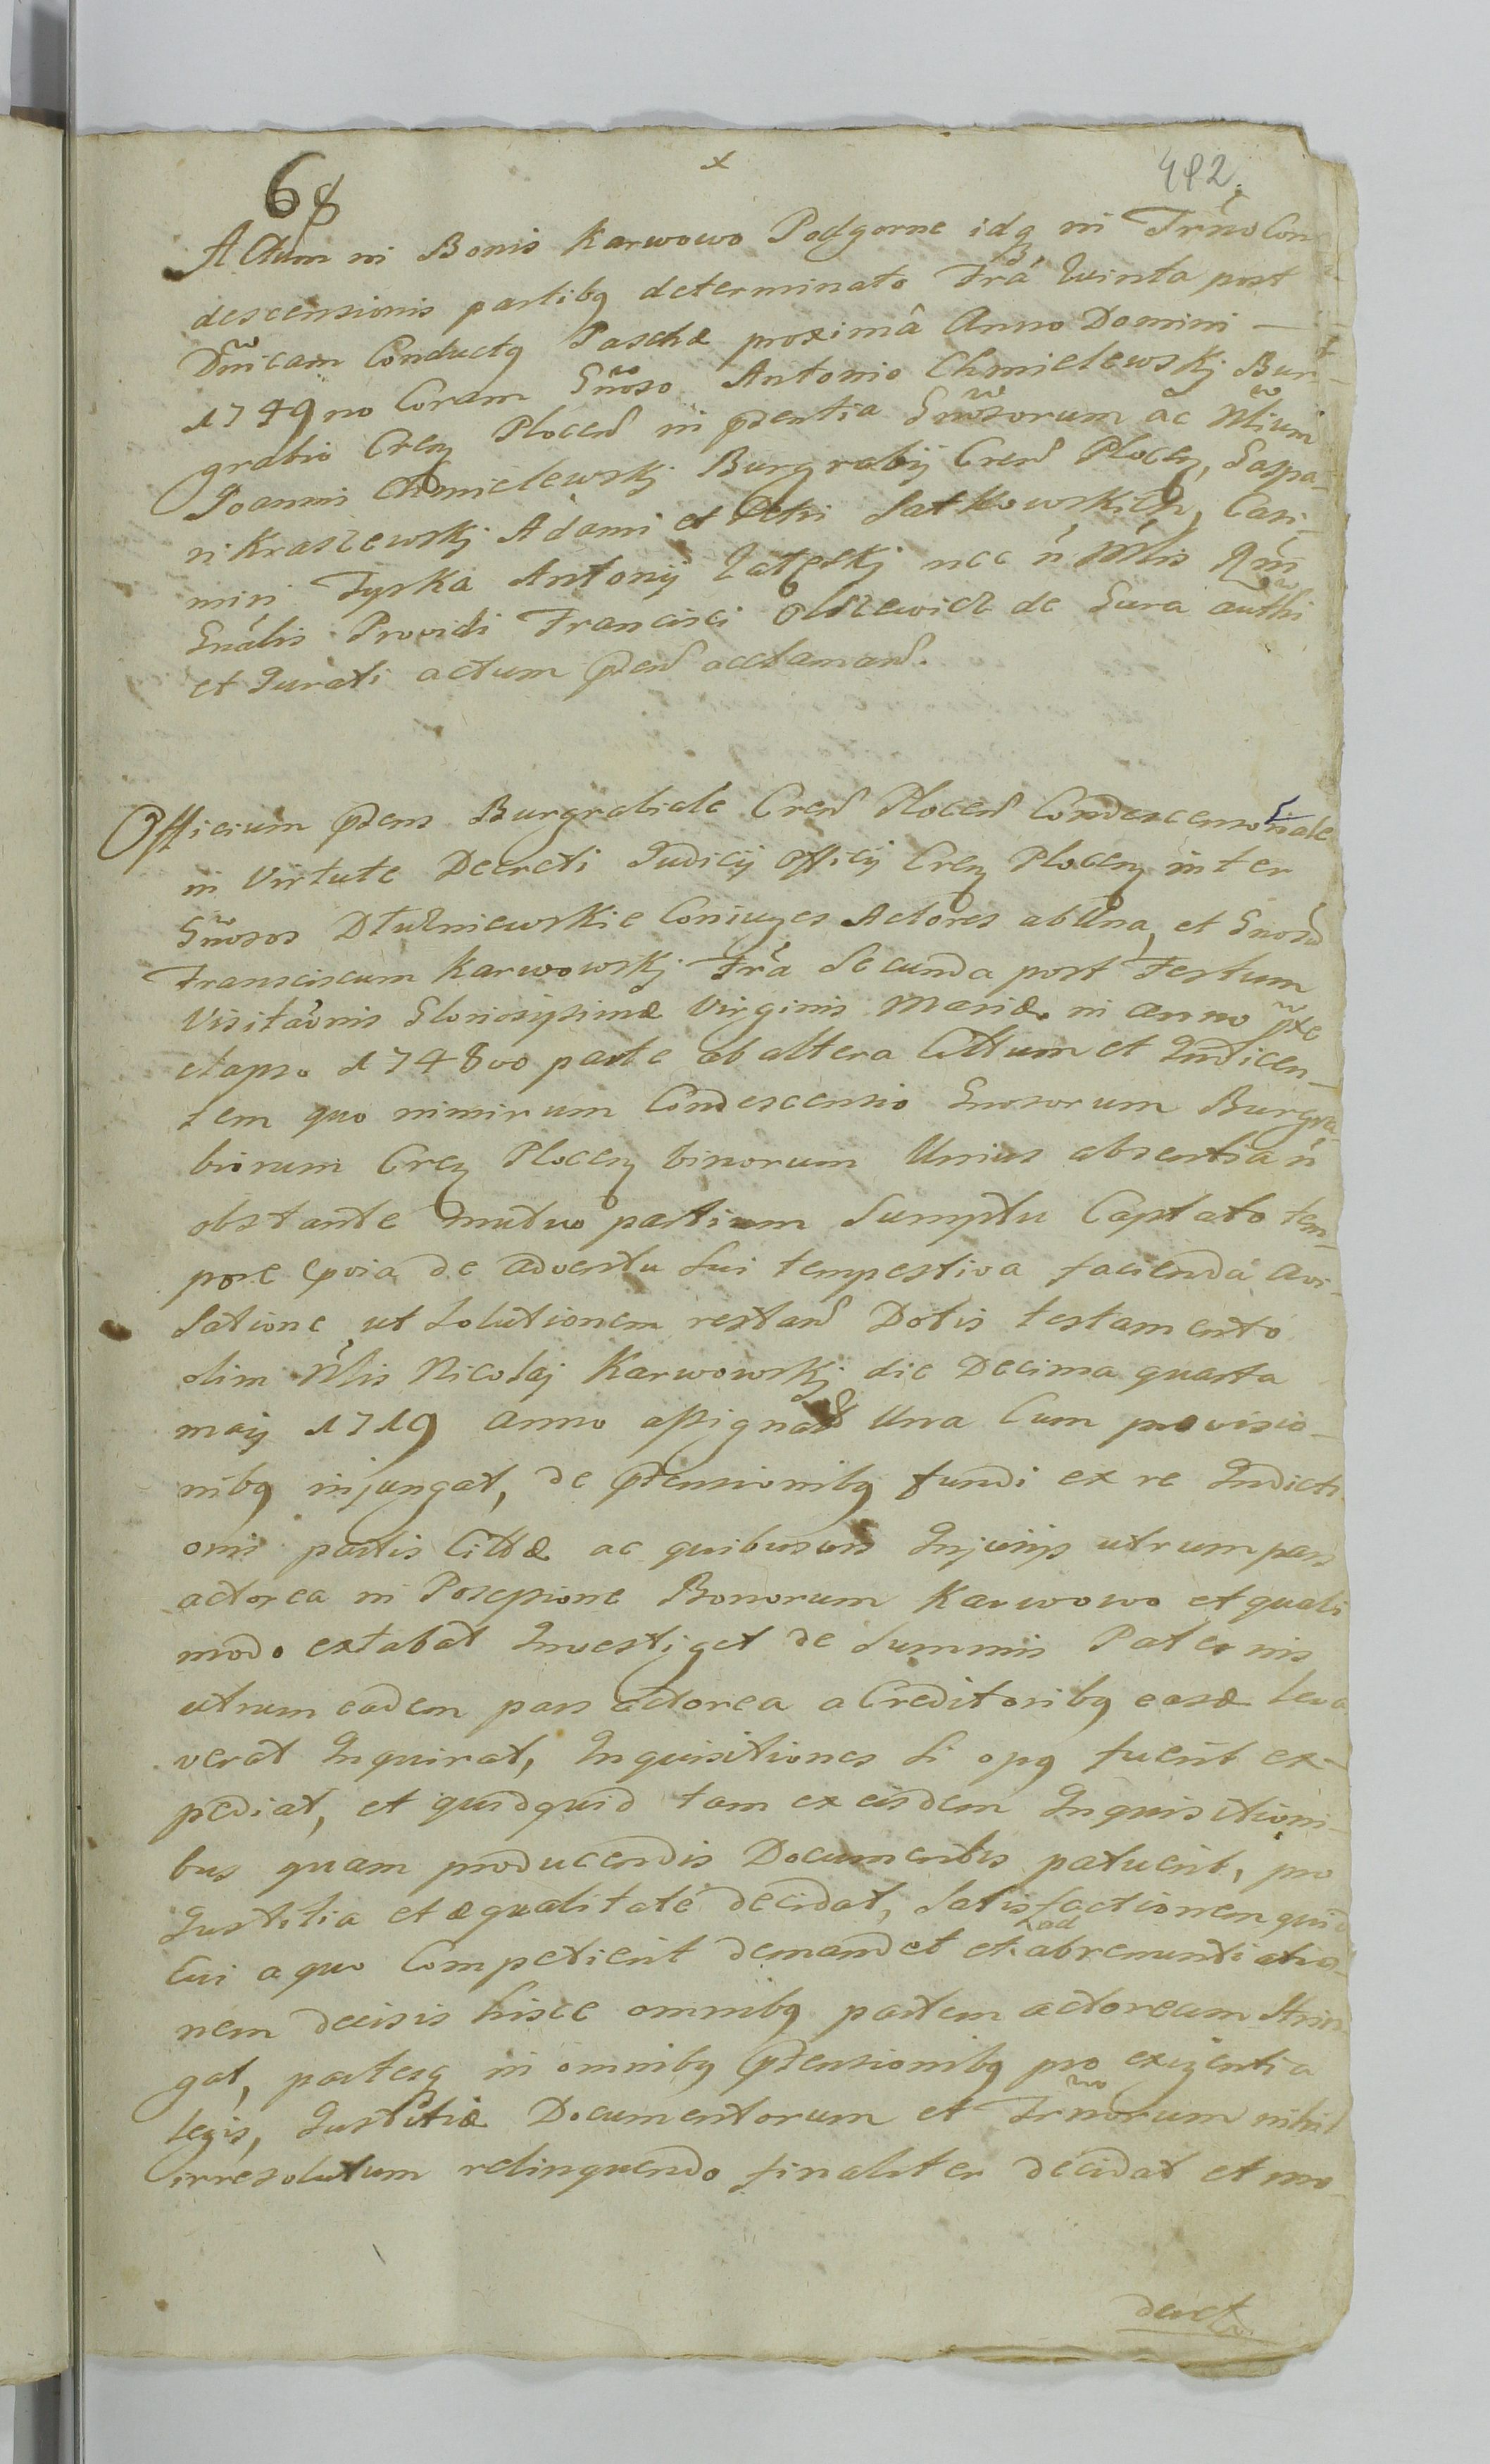 x
68
482
Actum in Bonis Karwowo Podgorne idq in Trno Con
descensionis partibq determinato Fra Quinta post
Dnicam Conductq Paschæ proximâ Anno Domini —
1749no Coram Gnoso Antonio Chmielewskj Bur-
grabio Cren Plocen in pntia Gnosorum ac Nlium
Joannis Chmielewskj Burgrabij Cren Plocen, Caspa-
ri Kraszewskj Adami et Petri Sutkowskich, Casi-
miri Tyska Antonij Zaleskj nec n Mtlis Rni
Gnalis Providi Francisci Olszewicz de Gura authi
et Jurati actum pnt acclamant.
Officium pntens Burgrabiale Cren Plocen Condescensoriale
in Virtute Decreti Judicij Officij Cren Plocen inter
Gnosos Dłużniewskie Coniuges Actores ab Una, et Gnosu
Franciscum Karwowskj Fra Secunda post Festum
Visitaonis Gloriosissimæ Virginis Mariæ in anno pte
elapso 1748vo parte ab altera Cittum et Indicen-
tem quo nimirum Condescensio Gnosorum Burgra-
biorum Cren Plocen binorum Unius absentia n
obstante mutuo partium Sumptu Captato tem-
pore pvia de adventu Sui tempestiva facienda avi-
satione ut Solutionem restan Dotis testamento
olim Nlis Nicolaj Karwowskj die Decima quarta
maij 1719 anno assignat Una Cum provisio-
nibq injungat, de ptensionibq fundi ex re Indicti
onis partis Cittæ ac quibusvis Injurijs utrum pars
actorea in Possessione Bonorum Karwowo et quali
modo extabat Investiget de Summis Paternis
utrum eadem pars actorea a Creditoribq easdæ leva
verat Inquirat, Inquisitiones Si opq fuerit ex-
pediat, et quidquid tam ex eisdem Inquisitioni-
bus quam producendis Documentis patuerit, pro
Justitia et æqualitate decidat, Satisfactionem quid
Cui a quo Competierit demandet et ad abrenuntiatio-
nem decisis hisce omnibq partem actoream Strin
gat, partesq in omnibq ptensionibq pro exigentia
legis, Justitiæ Documentorum et Trnorum nihil
irresolutum relinquendo finaliter decidat et mo-
derct